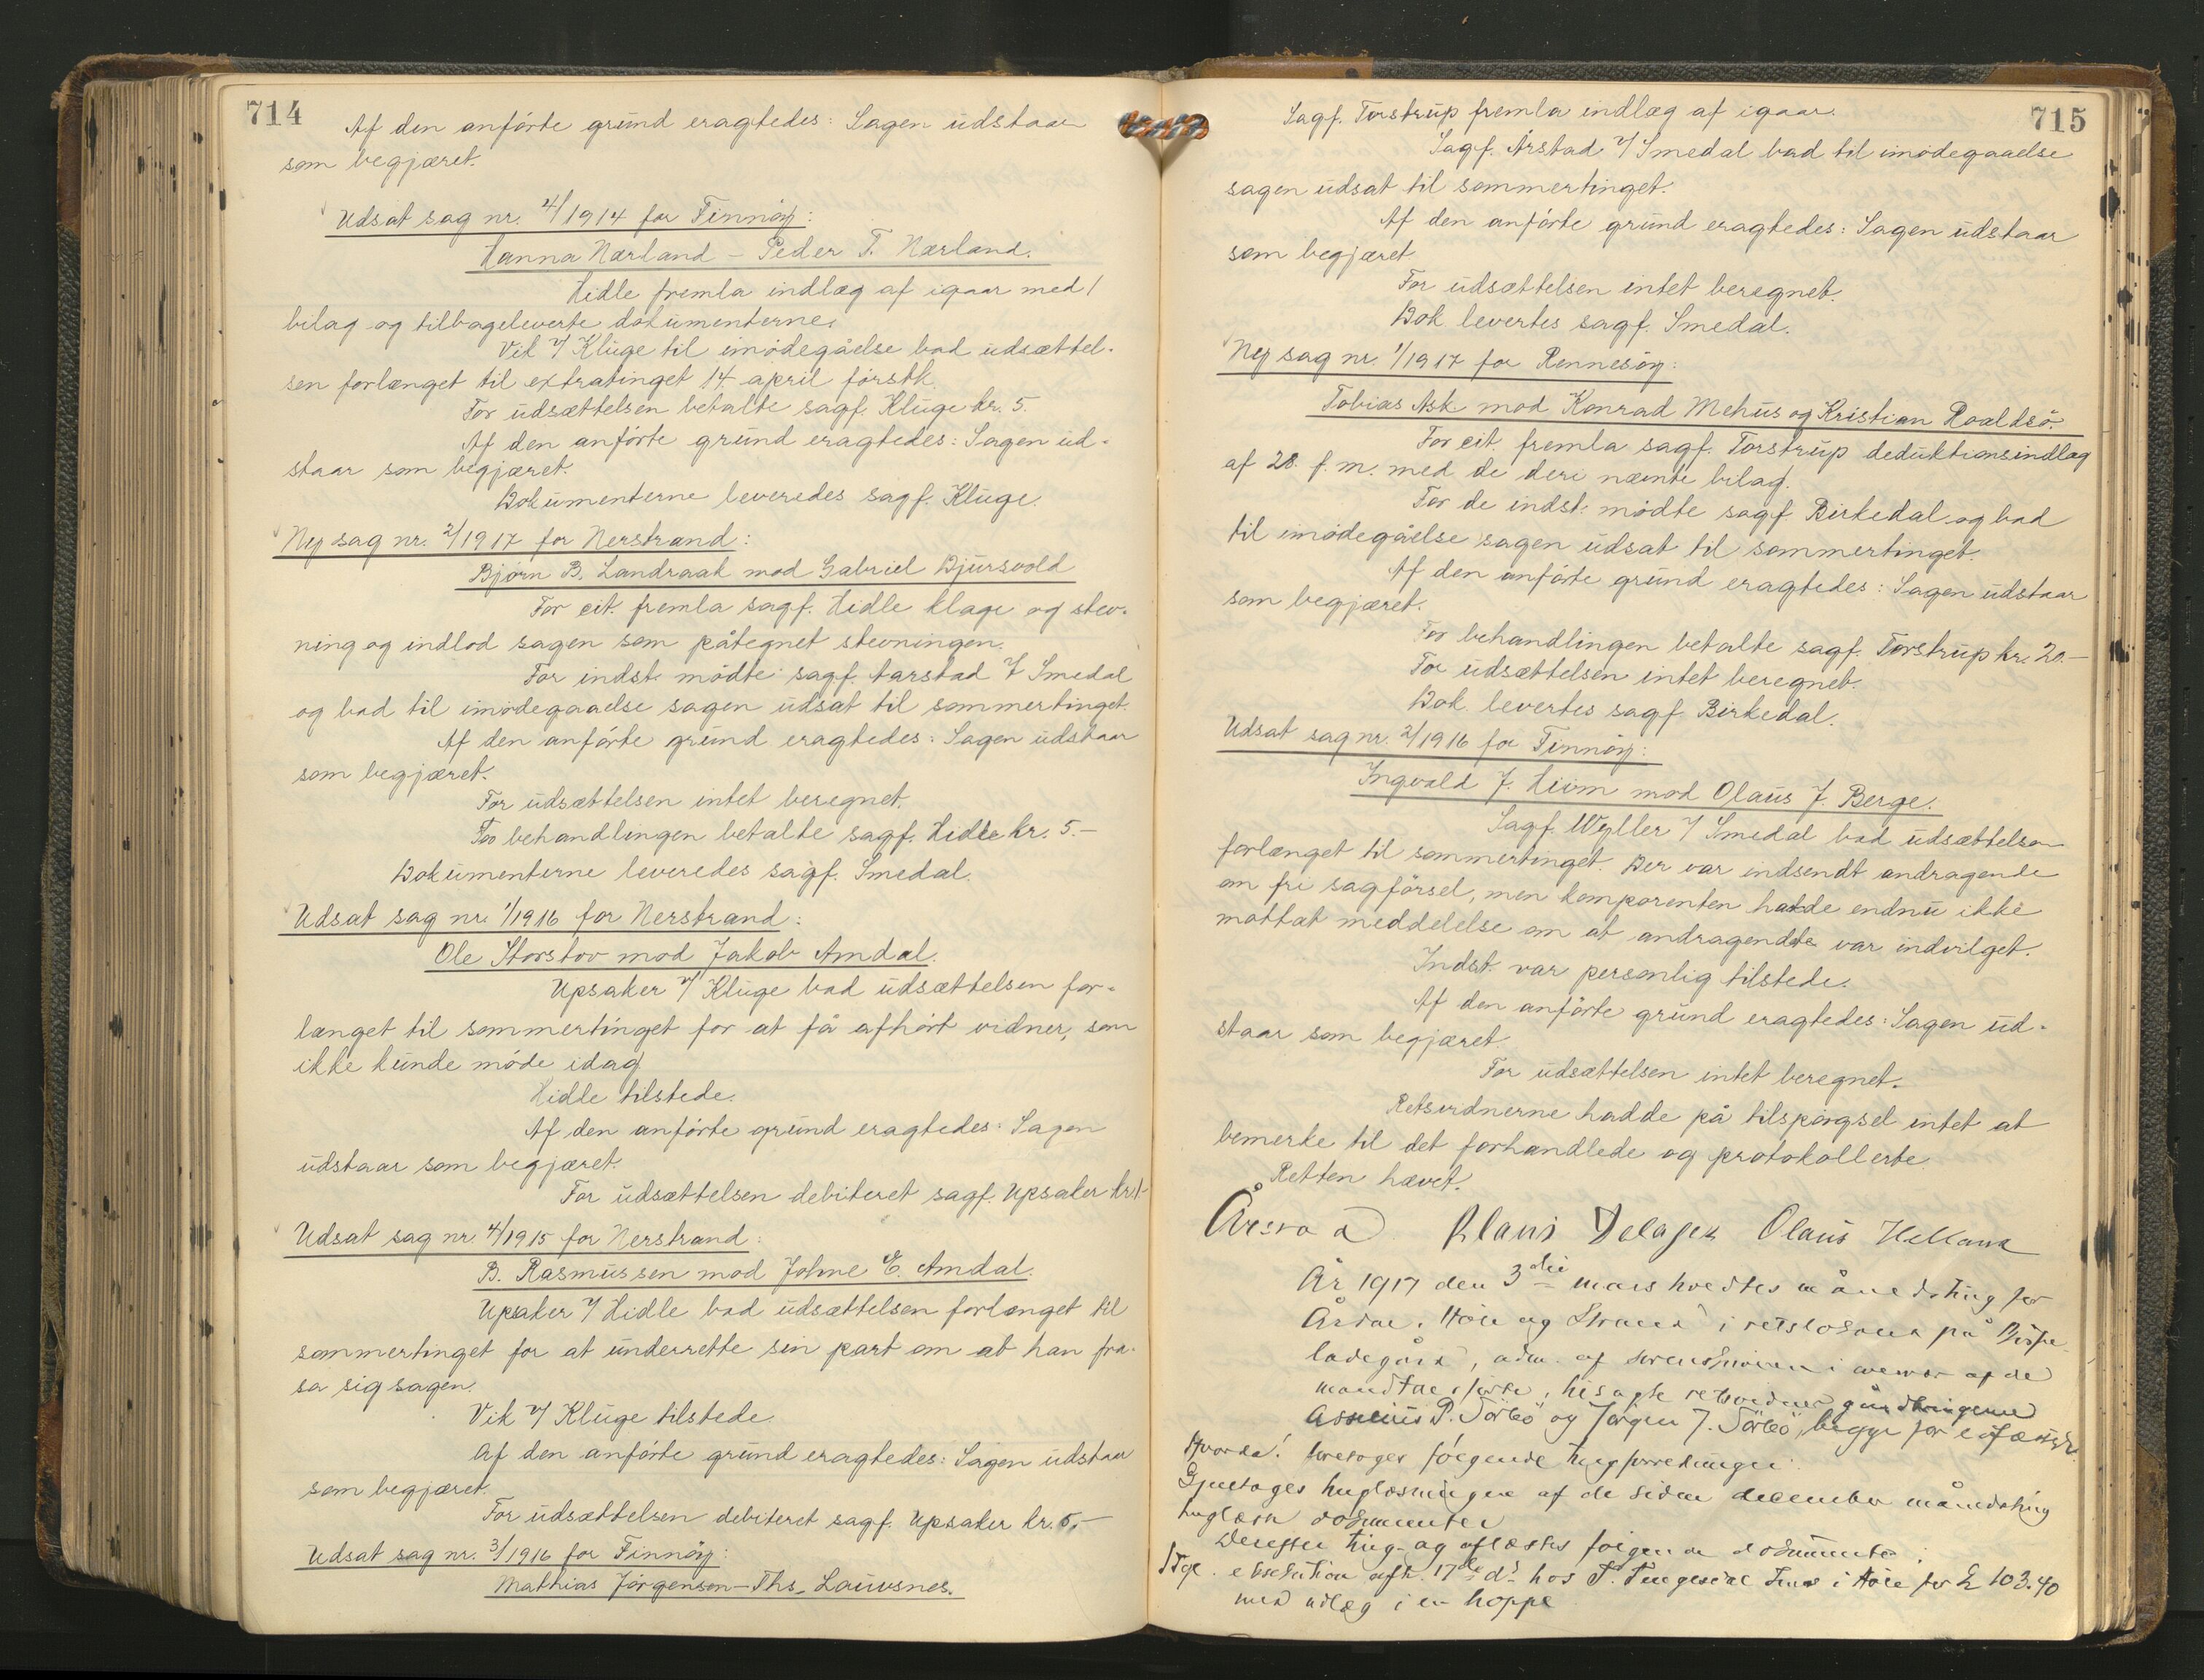 714
Af den anførte grund eragtedes: Sagen udstaar
som begjæret.
Udsat sag nr. 4/1914 for Finnøy:
Hanna Nærland – Peder T. Nærland.
Hidle fremla indlæg af igaar med 1
bilag og tilbageleverte dokumenterne.
Vik v/ Kluge til imødegåelse bad udsættel-
sen forlænget til extratinget 14. april førstk.
For udsættelsen betalte sagf. Kluge kr. 5.
Af den anførte grund eragtedes: Sagen ud-
staar som begjæret.
Dokumenterne leveredes sagf. Kluge.
Ny sag nr. 2/1917 for Nerstrand:
Bjørn B. Landraak mod Gabriel Djursvold
For cit. fremla sagf. Hidle klage og stev-
ning og indlod sagen som påtegnet stevningen.
For indst. mødte sagf. Aarstad v/ Smedal
og bad til imødegaaelse sagen udsat til sommertinget.
Af den anførte grund eragtedes: Sagen udstaar
som begjæret.
For udsættelsen intet beregnet.
For behandlingen betalte sagf. Hidle kr. 5.–
Dokumenterne leveredes sagf. Smedal.
Udsat sag nr. 1/1916 for Nerstrand:
Ole Storstov mod Jakob Amdal.
Upsaker v/ Kluge bad udsættelsen for-
længet til sommertinget for at få afhørt vidner, som
ikke kunde møde idag
Hidle tilstede.
Af den anførte grund eragtedes: Sagen
udstaar som begjæret.
For udsættelsen debiteret sagf. Upsaker kr.
Udsat sag nr. 4/1915 for Nerstrand:
B. Rasmussen mod Johne E. Amdal.
Upsaker v/ Hidle bad udsættelsen forlænget til
sommertinget for at underrette sin part om at han fra-
sa sig sagen.
Vik v/ Kluge tilstede.
Af den anførte grund eragtedes: Sagen udstaar
som begjæret.
For udsættelsen debiteret sagf. Upsaker kr. 5.–
Udsat sag nr. 3/1916 for Finnøy:
Mathias Jørgensen – Ths. Lauvsnes.
715
Sagf. Torstrup fremla indlæg af igaar.
Sagf. Årstad v/ Smedal bad til imødegaaelse
sagen udsat til sommertinget.
Af den anførte grund eragtedes: Sagen udstaar
som begjæret
For udsættelsen intet beregnet.
Dok. levertes sagf. Smedal.
Ny sag nr. 1/1917 for Rennesøy:
Tobias Ask mod Konrad Mehus og Kristian Roaldsø.
For cit. fremla sagf. Torstrup deduktionsindlæg
af 28. f. m. med de deri nævnte bilag.
For de indst. mødte sagf. Birkedal og bad
til imødegåelse sagen udsat til sommertinget.
Af den anførte grund eragtedes: Sagen udstaar
som begjæret.
For behandlingen betalte sagf. Torstrup kr. 20.–
For udsættelsen intet beregnet.
Dok. levertes sagf. Birkedal.
Udsat sag nr. 2/1916 for Finnøy:
Ingvald J. Hivm mod Olaus J. Berge.
Sagf. Wyller v/ Smedal bad udsættelsen
forlænget til sommertinget. Der var indsendt andragende
om fri sagførsel, men komparenten hadde endnu ikke
mottat meddelelse om at andragendet var indvilget.
Indst. var personlig tilstede.
Af den anførte grund eragtedes: Sagen ud-
staar som begjæret.
For udsættelsen intet beregnet.
Retsvidnerne hadde på tilspørgsel intet at
bemerke til det forhandlede og protokollerte.
Retten hævet.
Olaus Helland
År 1917 den 3die mars holdtes månedsting for
Årdal, Høle og Strand i retslokalet på Bispe-
ladegård, adm. af sorenskriveren i overvær af de
mandtalsførte, hisagte retsvidner gårdbrugerne
Assenius P. Tørbø og Jørgen J. Tørbø, begge for
Hvorda! foretoges følgende tingforretninger:
Gjentoges tinglæsningen af de siden december månedsting
tinglæste dokumenter
Derefter ting- og aflæstes følgende dokumenter:
eksekution afh. 17de ds hos T. Tengesdal i Høle for kr 103.40
med udlæg i en hoppe